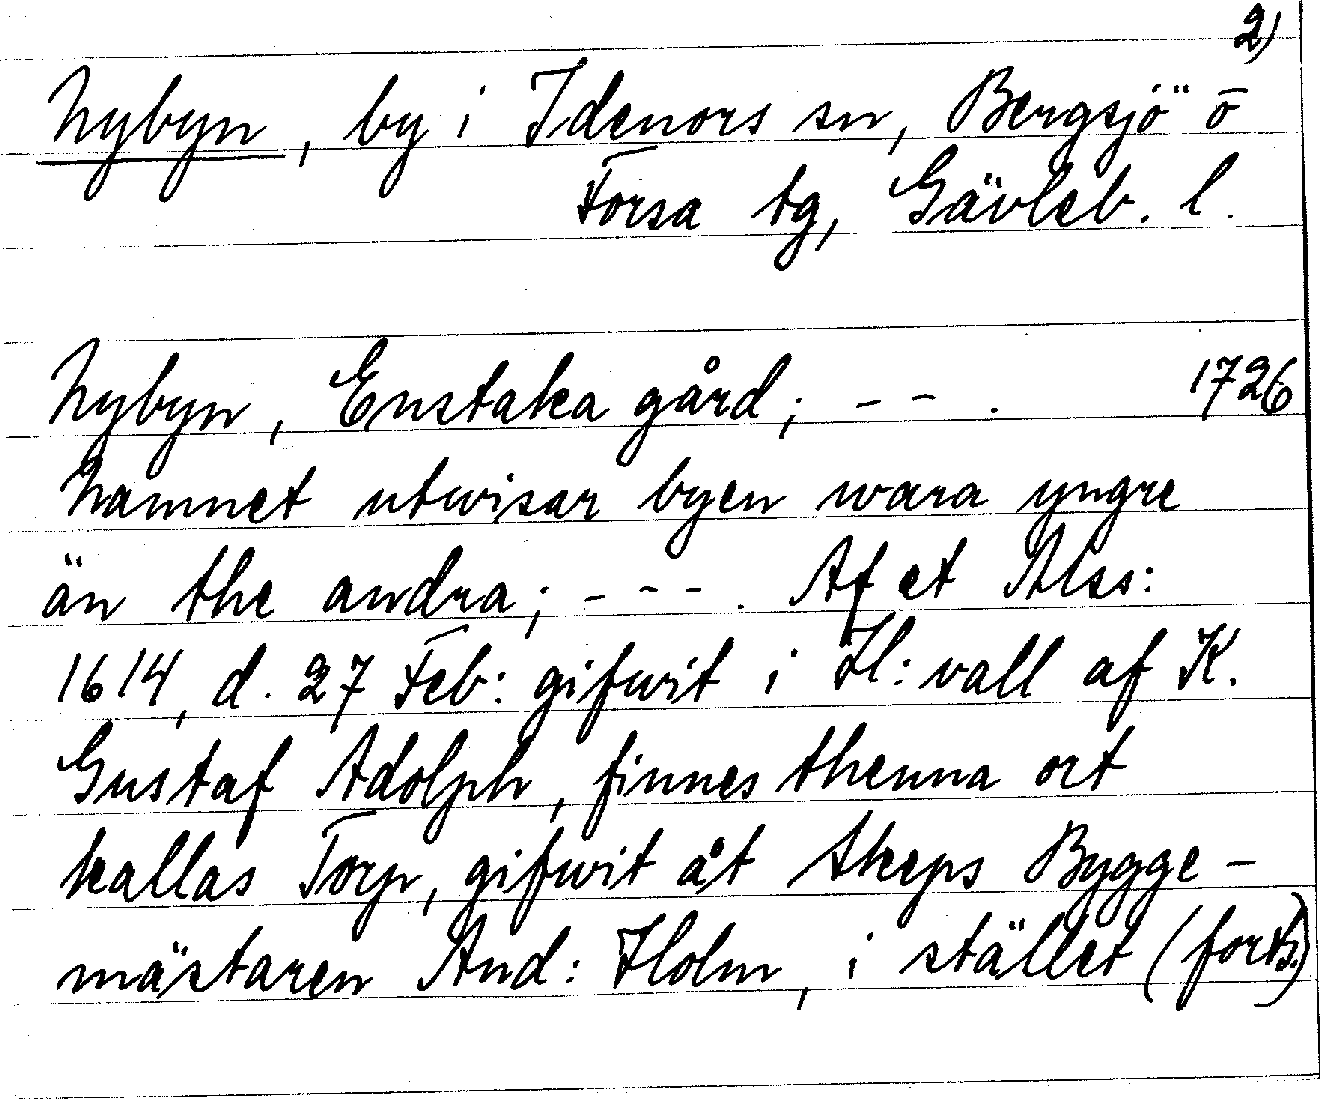 2)
Nybyn, by i Idenors sn, Bergsjö o
Forsa tg, Gävleb. l.
Nybyn, Enstaka gård; - - . 1726
Namnet utwisar byen wara yngre
än the andra; - - - . Af et Mss:
1614, d. 27 Feb: gifwit i H:vall af K.
Gustaf Adolph, finnes thenna ort
kallas Torp, gifwit åt Skeps Bygge-
mästaren And: Holm, i stället (forts.)